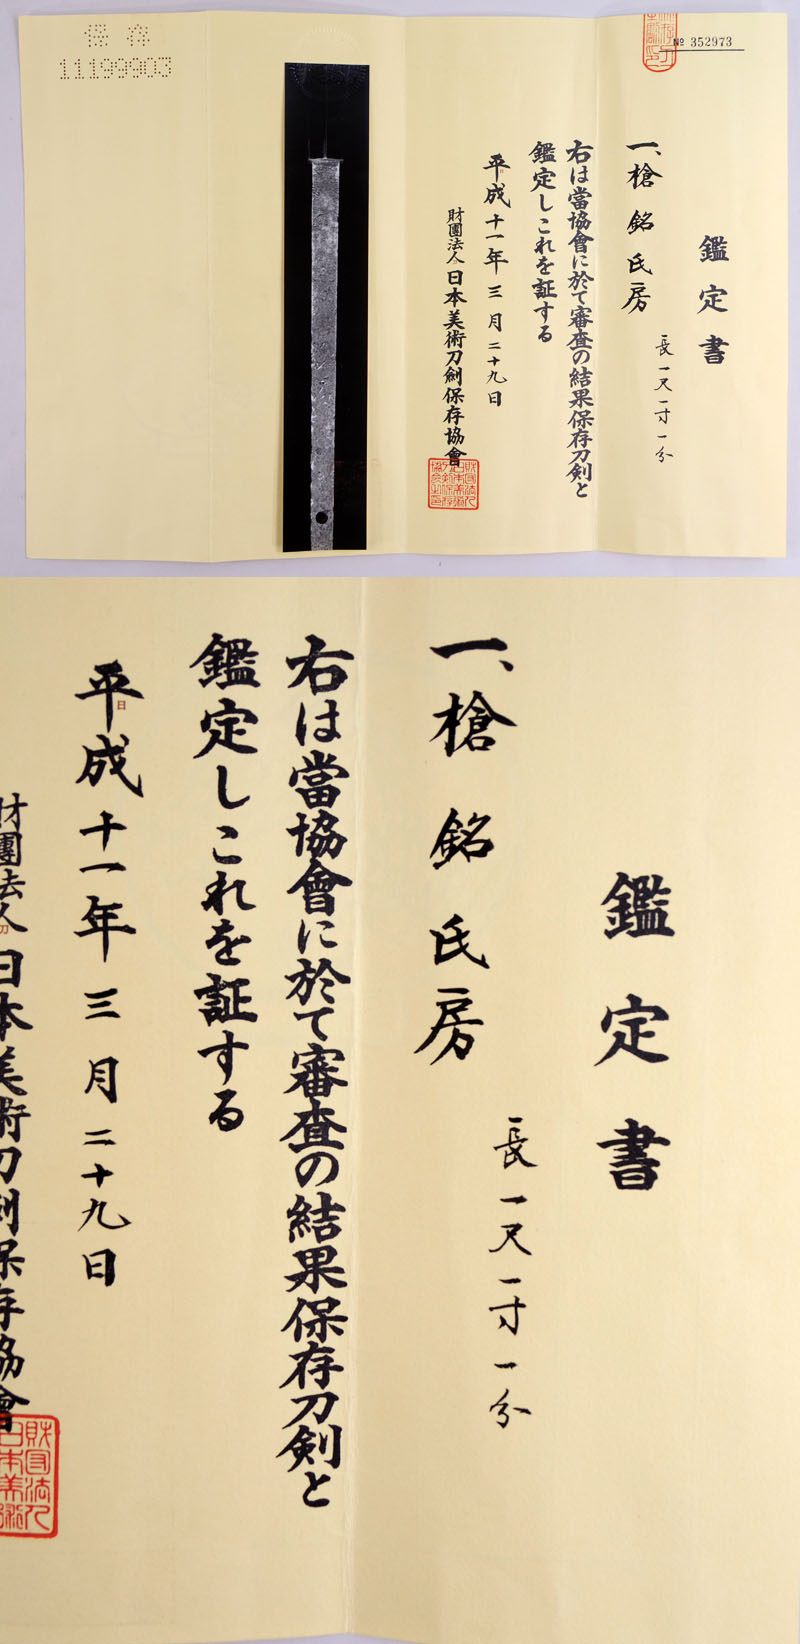 保存
11199903
№ 352973
鑑定書
一、槍 銘 氏房
長一尺一寸一分
右は當協會に於て審査の結果保存刀剣と
鑑定しこれを証する
平成十一年三月二十九日
財團法人日本美術刀剣保存協會
鑑定書
一、槍 銘 氏房
長一尺一寸一分
右は當協會に於て審査の結果保存刀剣と
鑑定しこれを証する
平成十一年三月二十九日
財團法人日本美術刀剣保存協會